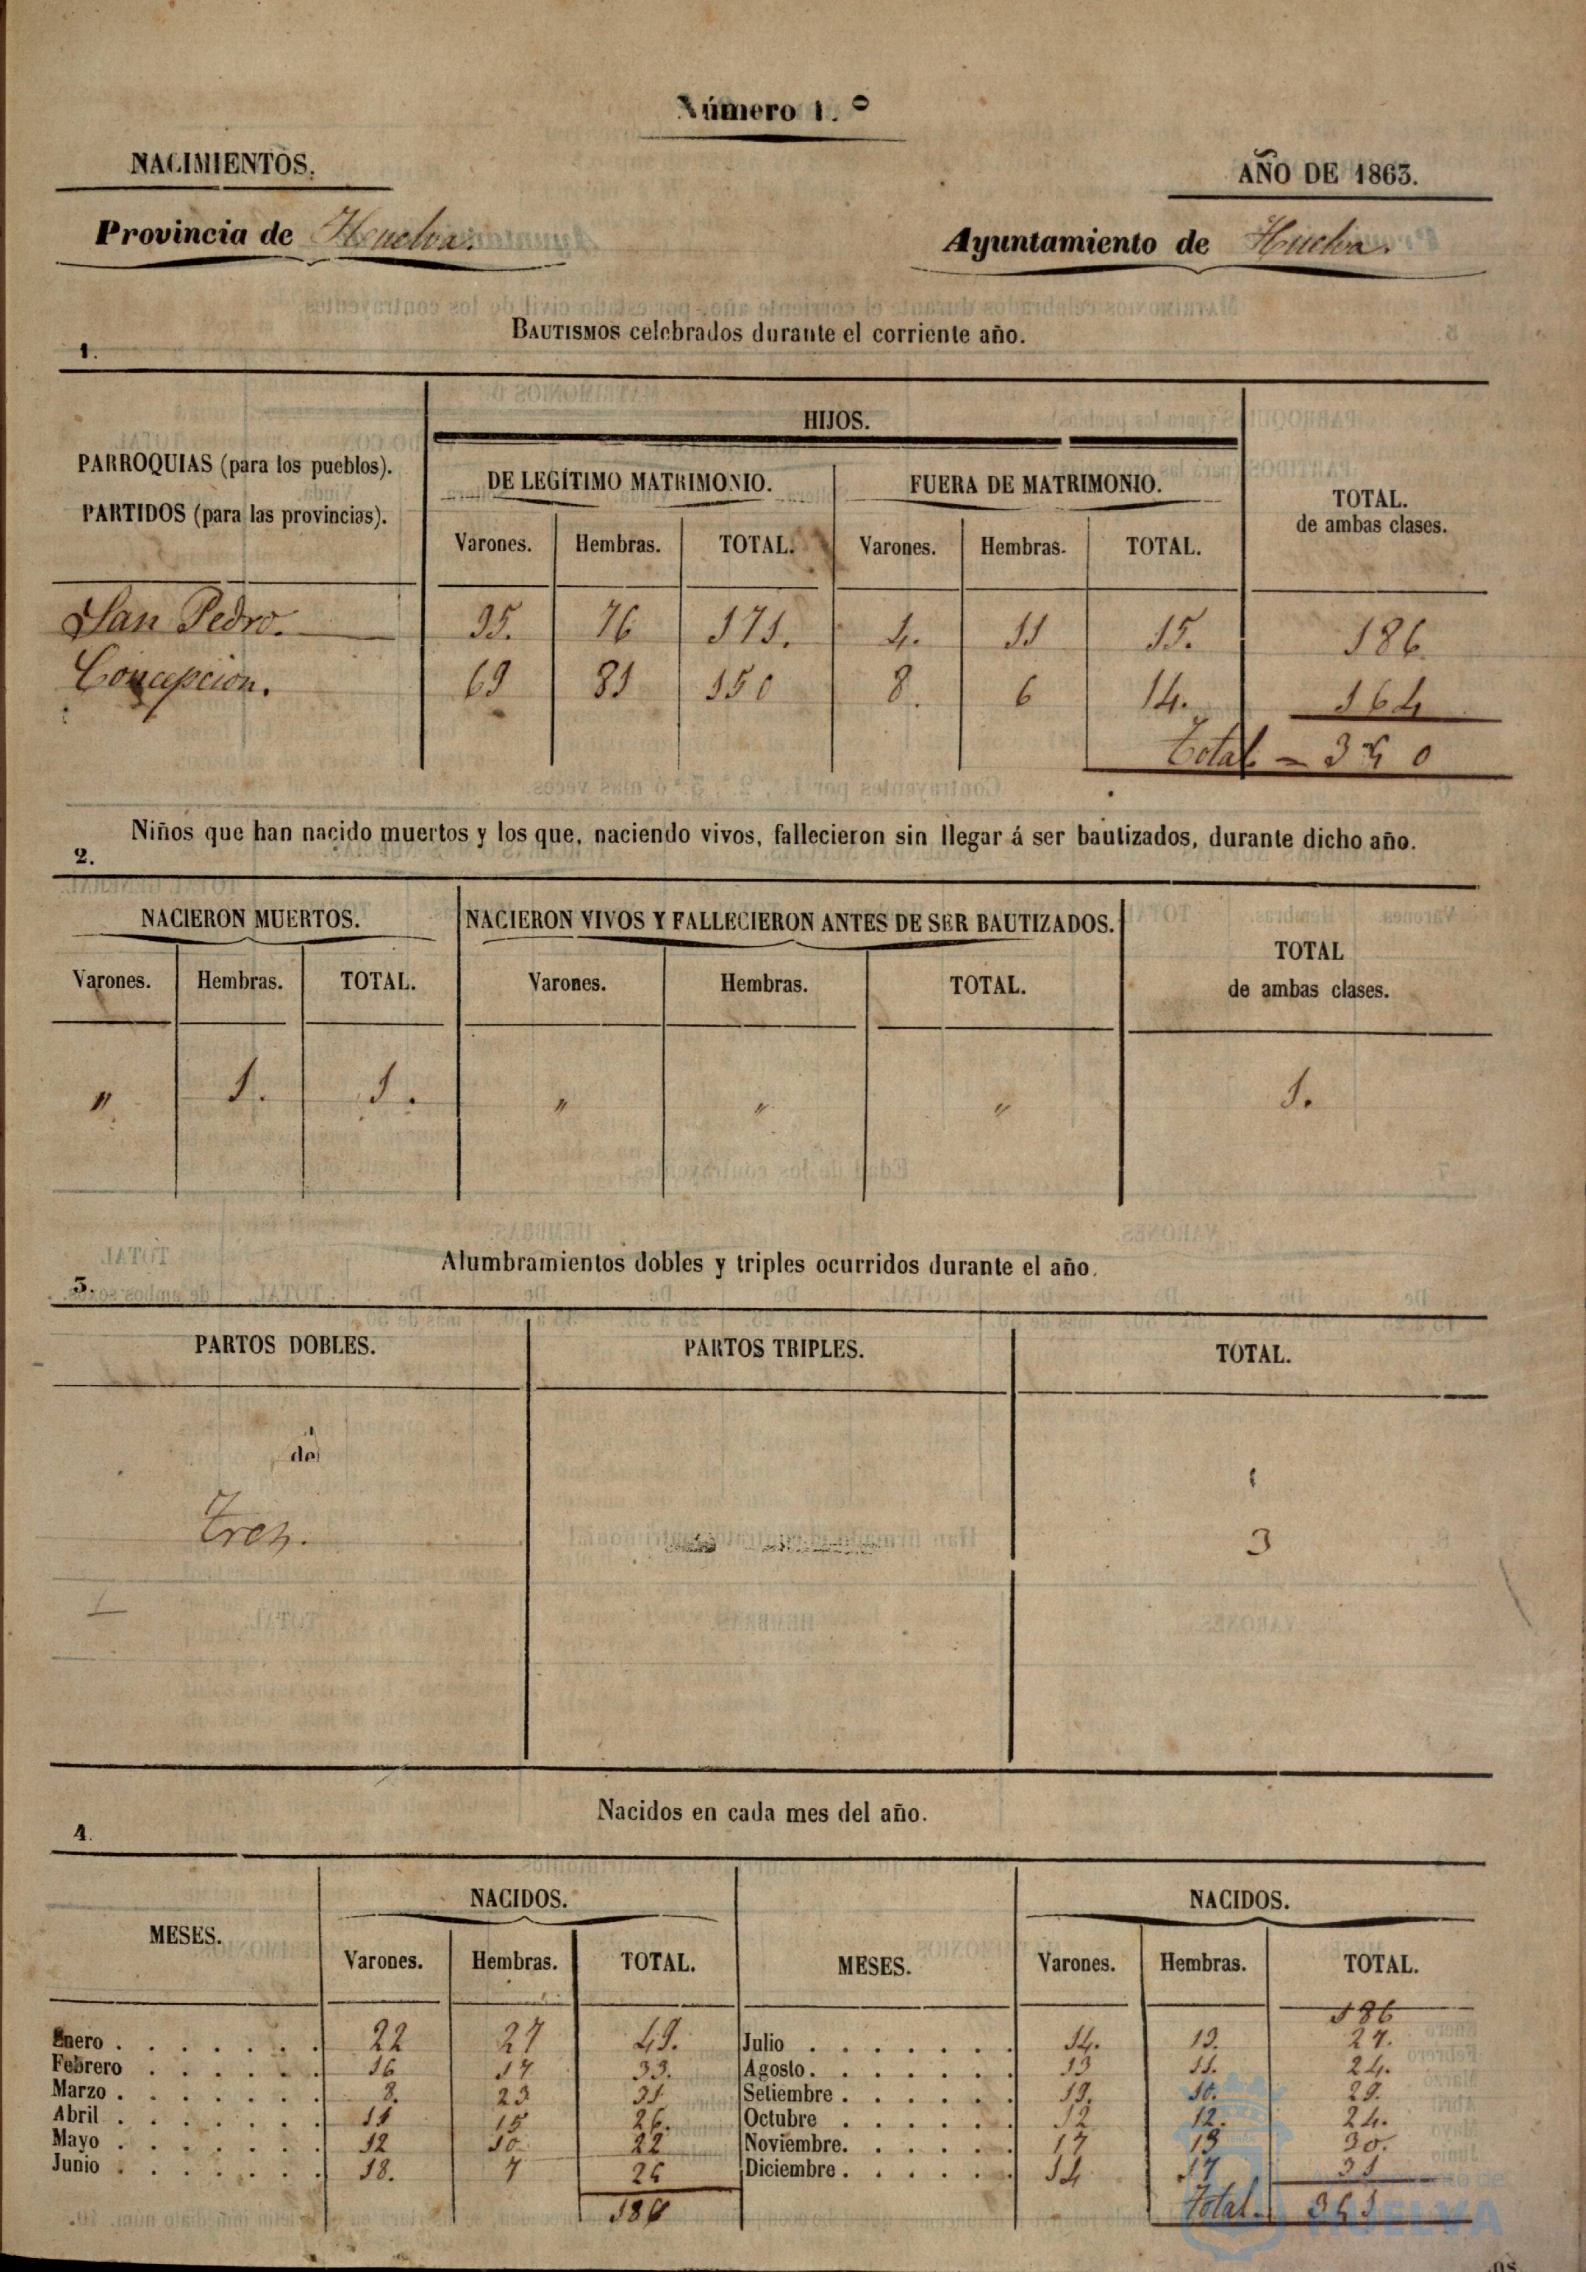 Número 1.º
NACIMIENTOS.
AÑO DE 1863.
Provincia de Huelva.
Ayuntamiento de Huelva.
BAUTISMOS celebrados durante el corriente año.
1.
HIJOS.
PARROQUIAS (para los pueblos).
PARTIDOS (para las provincias).
DE LEGÍTIMO MATRIMONIO.
FUERA DE MATRIMONIO.
TOTAL.
de ambas clases.
Varones. Hembras. TOTAL. Varones. Hembras. TOTAL.
San Pedro. 95. 76 171. 4. 11 15. 186.
Concepcion. 69 81 150 8. 6 14. 164
Total = 350
Niños que han nacido muertos y los que, naciendo vivos, fallecieron sin llegar á ser bautizados, durante dicho año.
2.
NACIERON MUERTOS.
NACIERON VIVOS Y FALLECIERON ANTES DE SER BAUTIZADOS.
TOTAL
de ambas clases.
Varones. Hembras. TOTAL. Varones. Hembras. TOTAL.
" 1. 1. " " " 1.
Alumbramientos dobles y triples ocurridos durante el año.
3.
PARTOS DOBLES. PARTOS TRIPLES. TOTAL.
Tres. 3
Nacidos en cada mes del año.
4.
MESES. NACIDOS. MESES. NACIDOS.
Varones. Hembras. TOTAL. Varones. Hembras. TOTAL.
186
Enero . . . . . . . 22 27 49. Julio . . . . . . . 14. 13. 27.
Febrero . . . . . . 16 17 33. Agosto. . . . . . . 13 11. 24.
Marzo . . . . . . . 8. 23 31 Setiembre . . . . . 19. 10. 29.
Abril . . . . . . . 11 15 26. Octubre . . . . . . 12 12. 24.
Mayo . . . . . . . 12 10 22 Noviembre. . . . . . 17 13 30.
Junio . . . . . . . 18. 7 25 Diciembre . . . . . 14 17 31
186
Total. 351
HUELVA